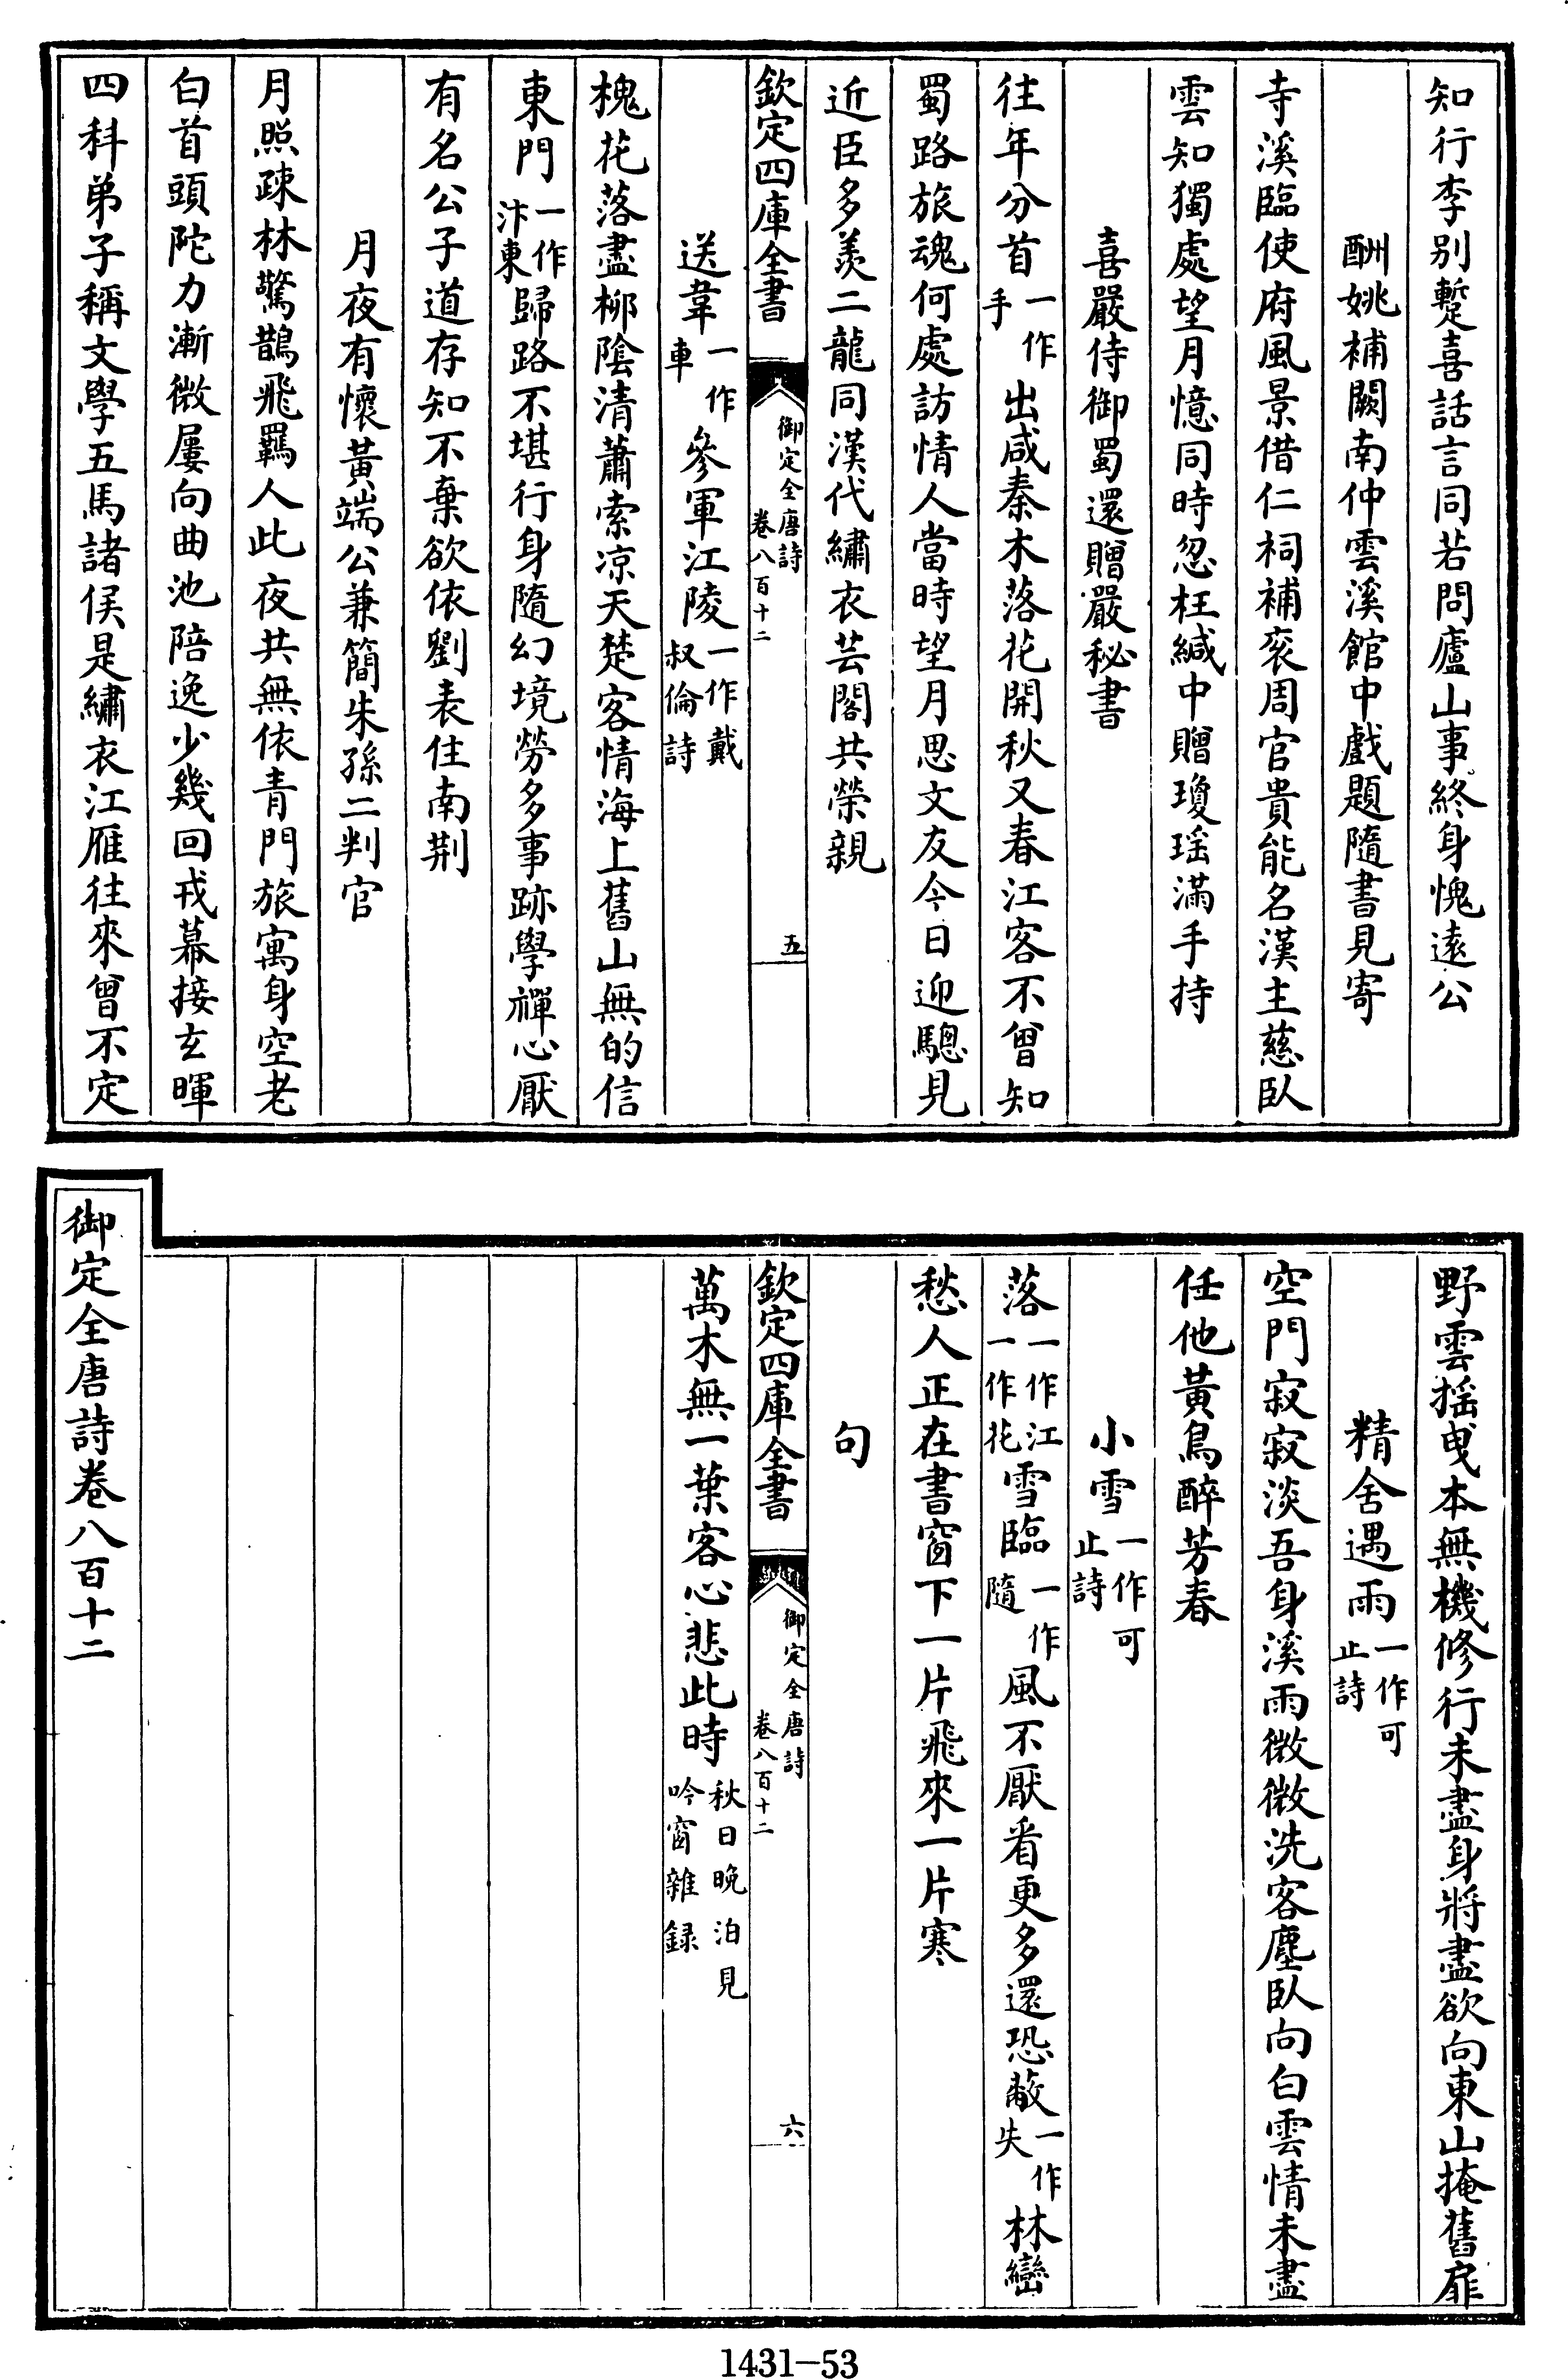 知行李别蹔喜話言同若問廬山事終身愧遠公
酬姚補闕南仲雲溪館中戲題隨書見寄
寺溪臨使府風景借仁祠補衮周官貴能名漢主慈臥
雲知獨處望月憶同時忽枉緘中贈瓊瑶滿手持
喜嚴侍御蜀還贈嚴秘書
往年分首一作手出咸秦木落花開秋又春江客不曾知
蜀路旅魂何處訪情人當時望月思文友今日迎驄見
近臣多羨二龍同漢代繡衣芸閣共榮親
欽定四庫全書
御定全唐詩
卷八百十二
五
送韋一作車參軍江陵一作戴叔倫詩
槐花落盡柳陰清蕭索凉天楚客情海上舊山無的信
東門一作汴東歸路不堪行身隨幻境勞多事跡學禪心厭
有名公子道存知不棄欲依劉表住南荆
月夜有懷黄端公兼簡朱孫二判官
月照疎林驚鵲飛羈人此夜共無依青門旅寓身空老
白首頭陀力漸微屢向曲池陪逸少幾回戎幕接玄暉
四科弟子稱文學五馬諸侯是繡衣江雁往來曾不定
野雲揺曵本無機修行未盡身將盡欲向東山掩舊扉
精舍遇雨一作可止詩
空門寂寂淡吾身溪雨微微洗客塵臥向白雲情未盡
任他黄鳥醉芳春
小雪一作可止詩
落一作江一作花雪臨一作隨風不厭看更多還恐蔽一作失林巒
愁人正在書窗下一片飛來一片寒
句
欽定四庫全書
御定全唐詩
卷八百十二
六
萬木無一葉客心悲此時秋日晚泊見吟窗雜録
御定全唐詩卷八百十二
1431-53